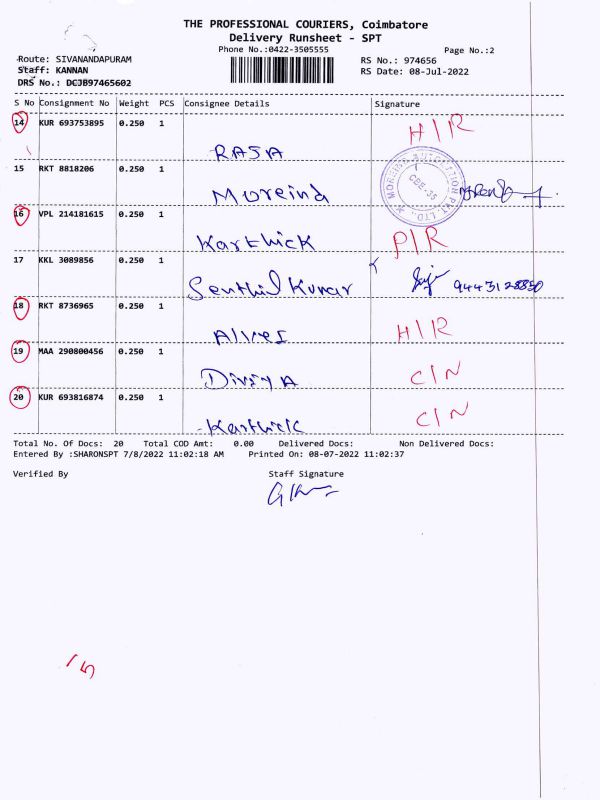 THE PROFESSIONAL COURIERS, Coimbatore
Delivery Runsheet - SPT
Phone No.:0422-3505555
Page No.:2
Route: SIVANANDAPURAM
RS No.: 974656
Staff: KANNAN
RS Date: 08-Jul-2022
DRS No.: DCJB97465602
S No Consignment No Weight PCS Consignee Details Signature
14 KUR 693753895 0.250 1 H/R
RAJA
15 RKT 8818206 0.250 1
Moreind
16 VPL 214181615 0.250 1
Karthick P/R
17 KKL 3089856 0.250 1
Senthil Kumar 9443128850
18 RKT 8736965 0.250 1
H/R
19 MAA 290800456 0.250 1
Diviya C/N
20 KUR 693816874 0.250 1 C/N
Karthick
Total No. Of Docs: 20 Total COD Amt: 0.00 Delivered Docs: Non Delivered Docs:
Entered By :SHARONSPT 7/8/2022 11:02:18 AM Printed On: 08-07-2022 11:02:37
Verified By Staff Signature